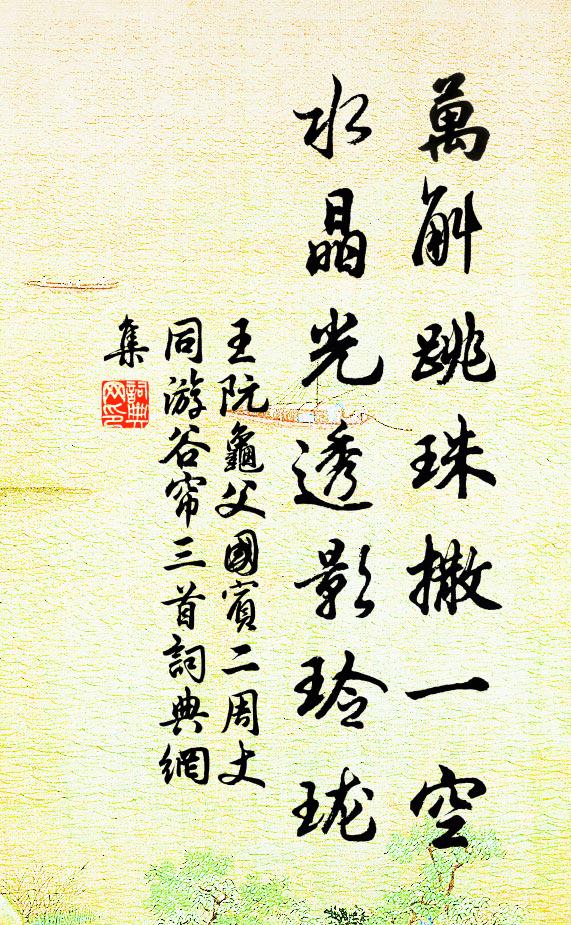 萬斛跳珠撒一空
水晶光透影玲珑
王阮龜父國賓二周丈
同游谷帘三首詞典網
集
詞典
网印